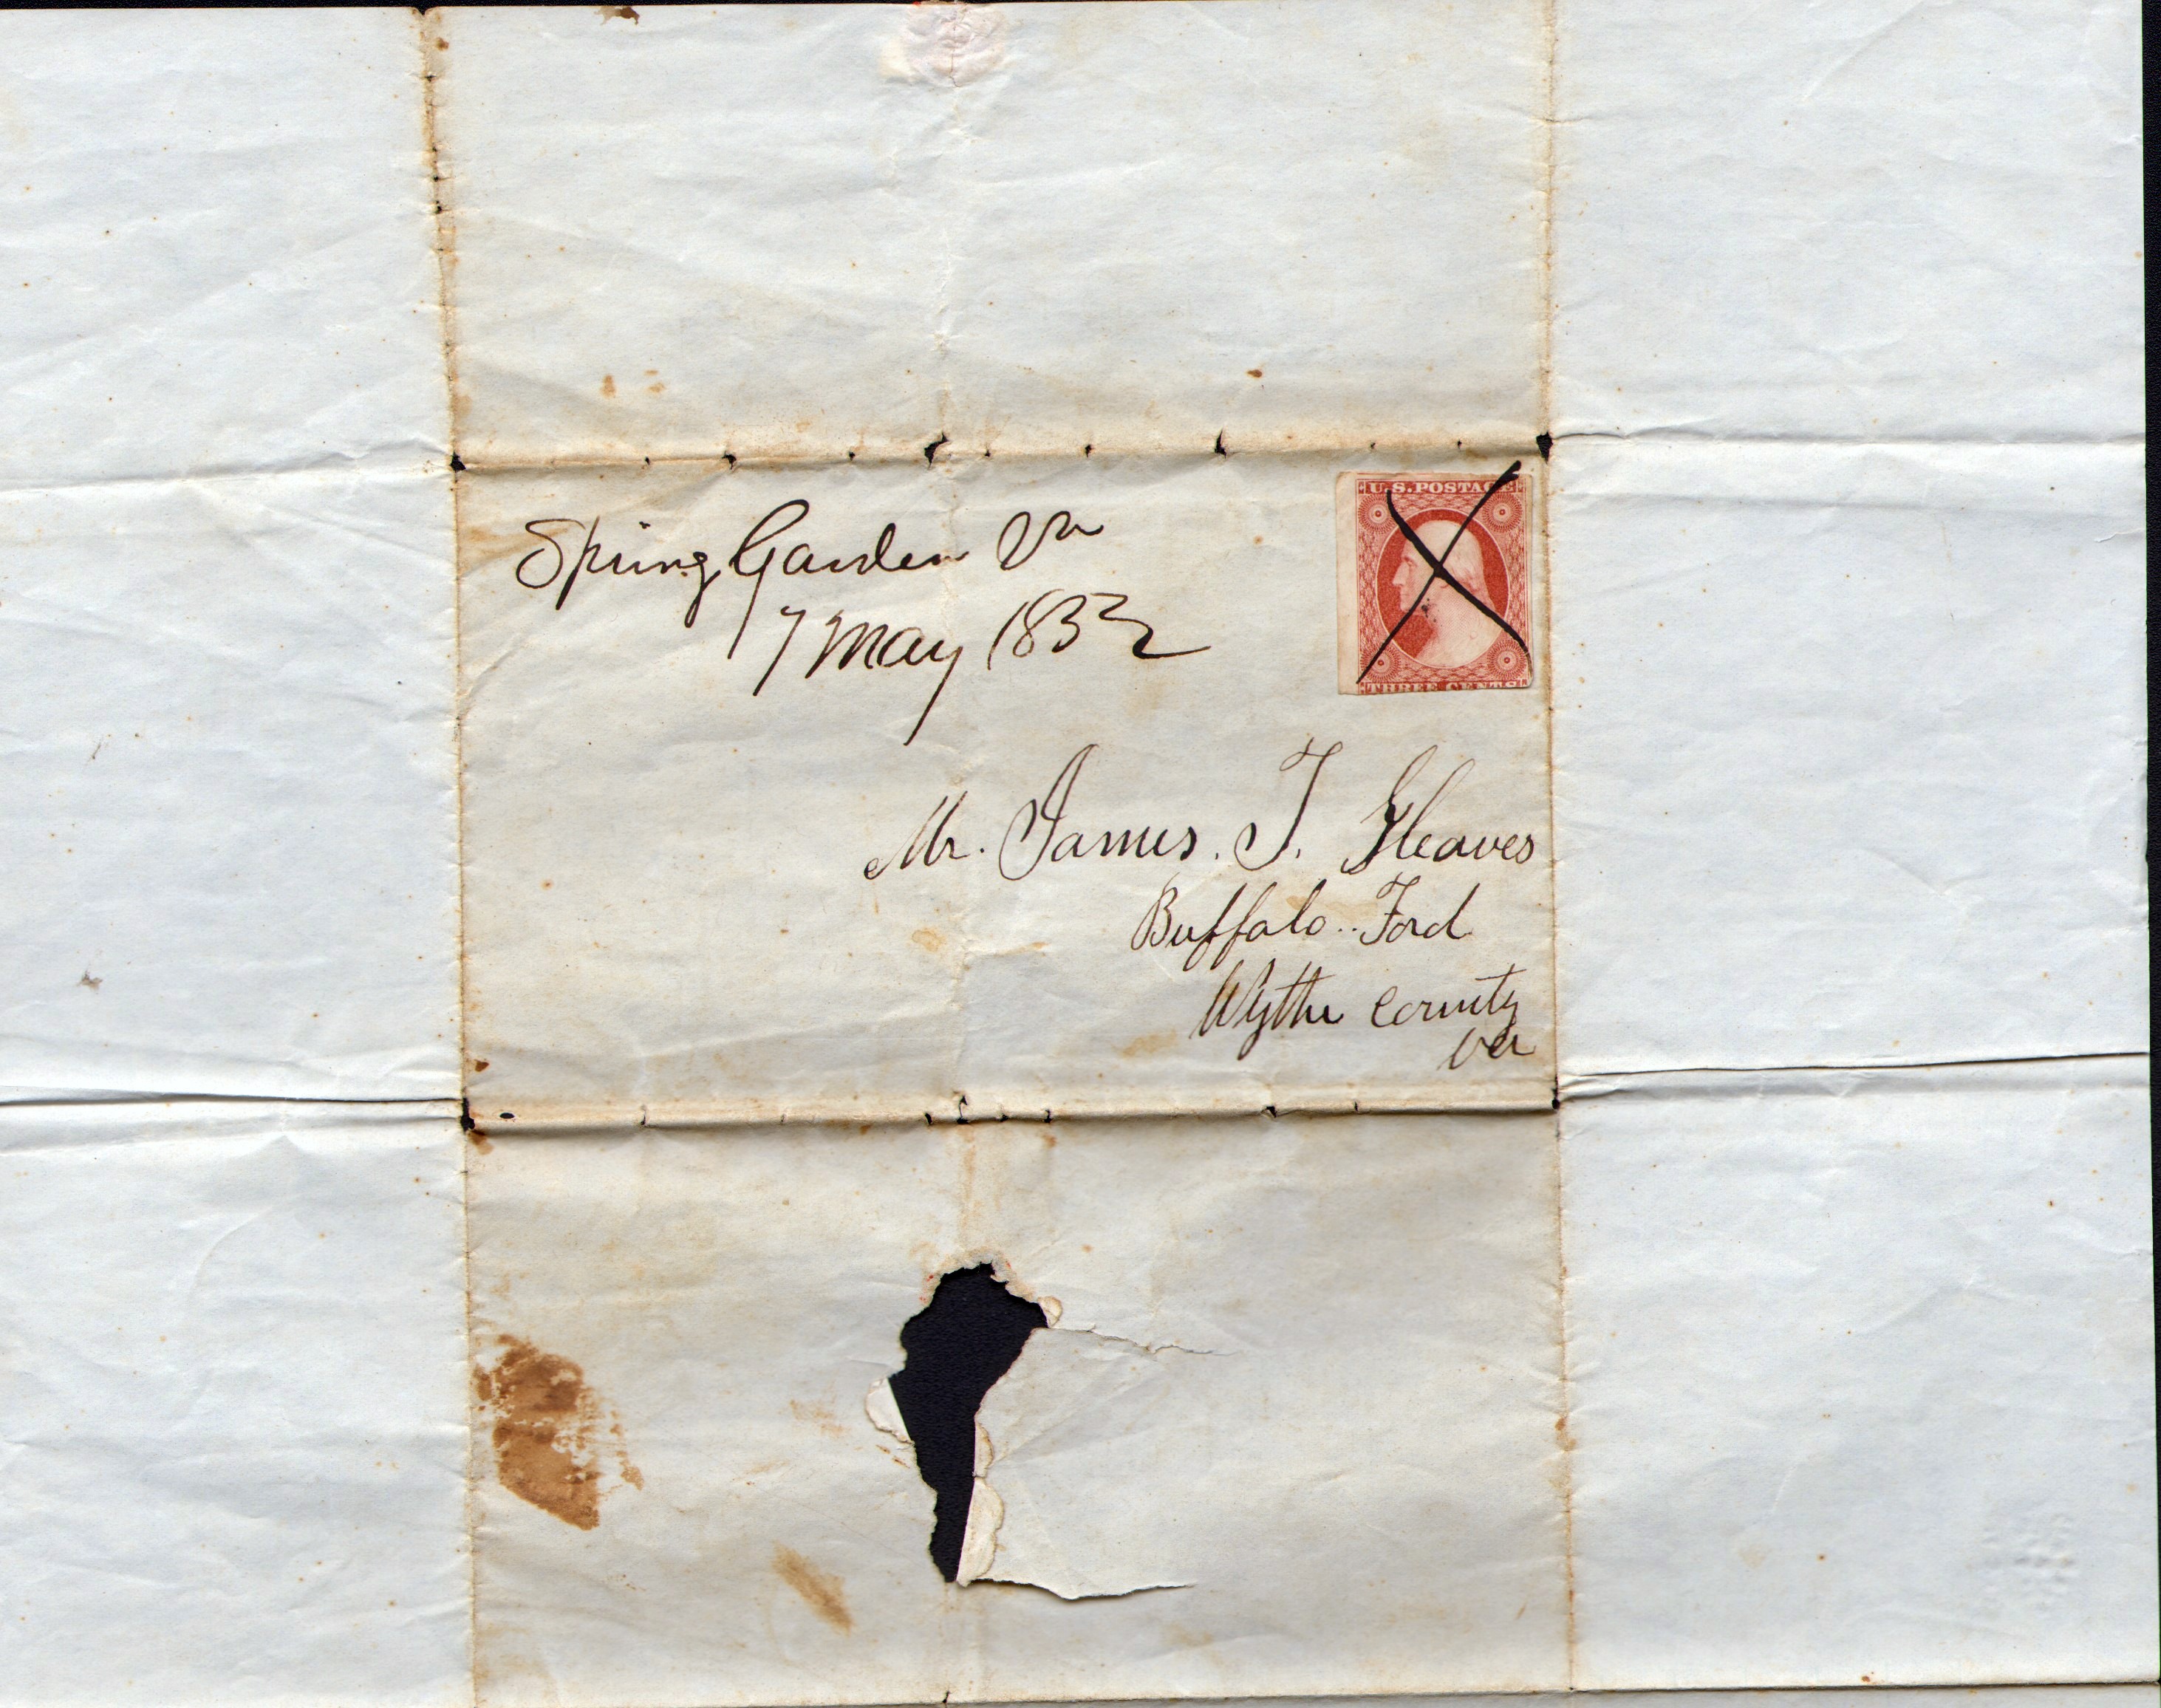 U.S. POSTAGE
Spring Garden Va
7 May 1852
THREE CENTS
Mr. James. T. Gleaves
Buffalo.. Ford
Wythe County
Va